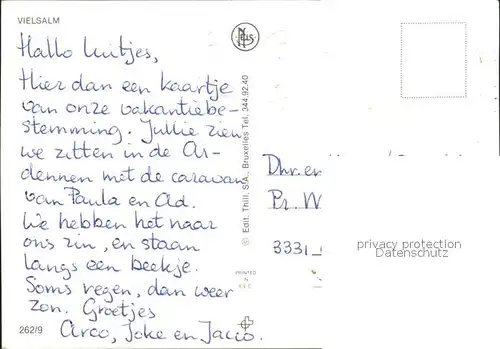 VIELSALM
Hallo luitjes,
Hier dan een kaartje
van onze vakantiebe-
stemming. Jullie zien
we zitten in de Ar-
dennen met de caravan
van Paula en Ad.
We hebben het naar
ons zin, en staan
langs een beekje.
Soms regen, dan weer
zon. Groetjes
Arco, Joke en Jacco.
262/9
NELS
© Edit. Thill, S.A., Bruxelles Tel. 344.92.40
PRINTED
IN
E.E.C.
Dhr en
Pr. W
3331
privacy protection
Datenschutz